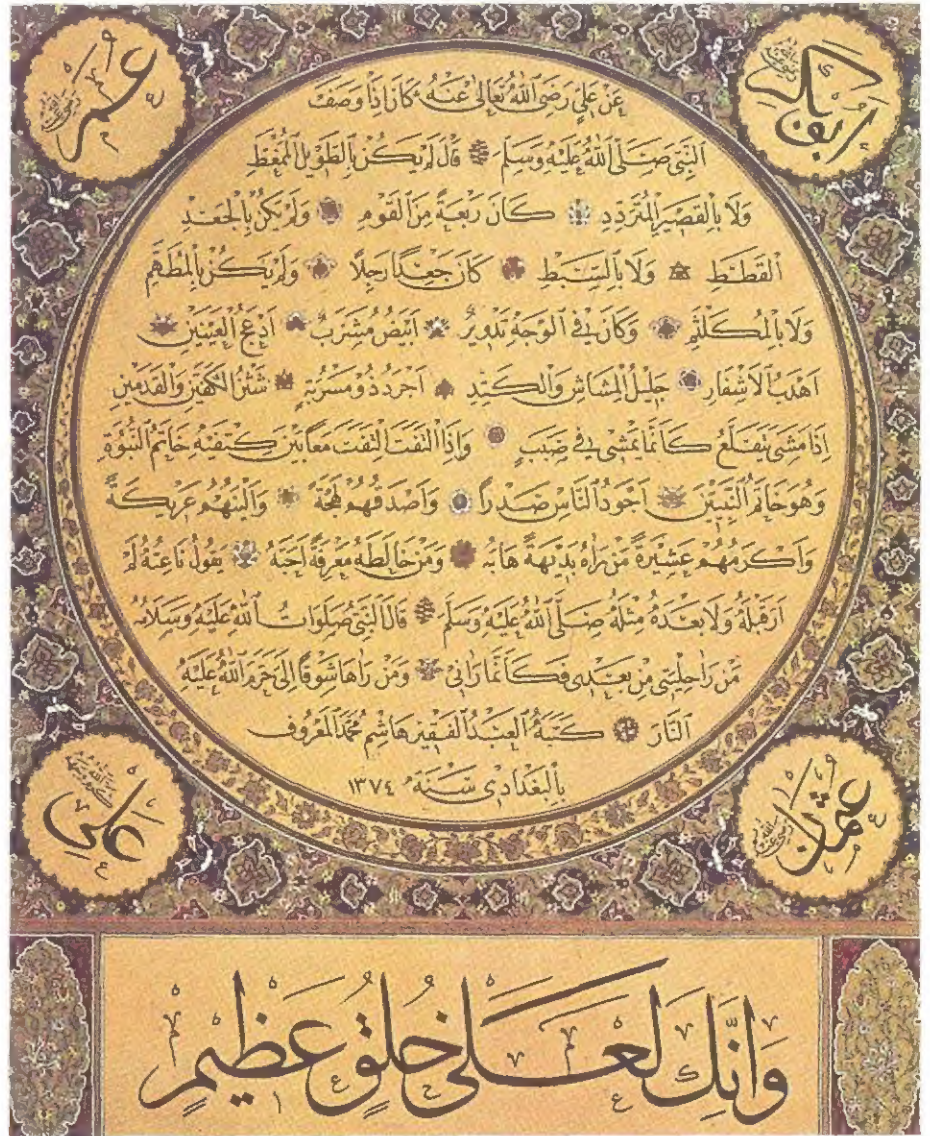 ابو بكر رضي الله عنه
عمر رضي الله عنه
عَنْ عَلِيٍّ رَضِيَ اللهُ تَعَالَى عَنْهُ كَانَ إِذَا وَصَفَ
النَّبِيَّ صَلَّى اللهُ عَلَيْهِ وَسَلَّمَ قَالَ لَمْ يَكُنْ بِالطَّوِيلِ الْمُمَّغِطِ
وَلَا بِالْقَصِيرِ الْمُتَرَدِّدِ كَانَ رَبْعَةً مِنَ الْقَوْمِ وَلَمْ يَكُنْ بِالْجَعْدِ
الْقَطَطِ وَلَا بِالسَّبِطِ كَانَ جَعْدًا رَجِلًا وَلَمْ يَكُنْ بِالْمُطَهَّمِ
وَلَا بِالْمُكَلْثَمِ وَكَانَ فِي الْوَجْهِ تَدْوِيرٌ اَبْيَضُ مُشْرَبٌ اَدْعَجُ الْعَيْنَيْنِ
اَهْدَبُ الْاَشْفَارِ جَلِيلُ الْمُشَاشِ وَالْكَتَدِ اَجْرَدُ ذُو مَسْرُبَةٍ شَثْنُ الْكَفَّيْنِ وَالْقَدَمَيْنِ
اِذَا مَشَى تَقَلَّعَ كَاَنَّمَا يَمْشِي فِي صَبَبٍ وَاِذَا الْتَفَتَ الْتَفَتَ مَعًا بَيْنَ كَتِفَيْهِ خَاتَمُ النُّبُوَّةِ
وَهُوَ خَاتَمُ النَّبِيِّينَ اَجْوَدُ النَّاسِ صَدْرًا وَاَصْدَقُهُمْ لَهْجَةً وَاَلْيَنُهُمْ عَرِيكَةً
وَاَكْرَمُهُمْ عَشِيرَةً مَنْ رَاٰهُ بَدِيهَةً هَابَهُ وَمَنْ خَالَطَهُ مَعْرِفَةً اَحَبَّهُ يَقُولُ نَاعِتُهُ لَمْ
اَرَ قَبْلَهُ وَلَا بَعْدَهُ مِثْلَهُ صَلَّى اللهُ عَلَيْهِ وَسَلَّمَ قَالَ النَّبِيُّ صَلَوَاتُ اللهِ عَلَيْهِ وَسَلَامُهُ
مَنْ رَاَ حِلْيَتِي مِنْ بَعْدِي فَكَاَنَّمَا رَاٰنِي وَمَنْ رَاٰهَا شَوْقًا اِلَيَّ حَرَّمَ اللهُ عَلَيْهِ
النَّارَ كَتَبَهُ الْعَبْدُ الْفَقِيرُ هَاشِم مُحَمَّد الْمَعْرُوف
بِالْبَغْدَادِي سَنَةَ ١٣٧٤
عثمان رضي الله عنه
علي
وَاِنَّكَ لَعَلَى خُلُقٍ عَظِيمٍ